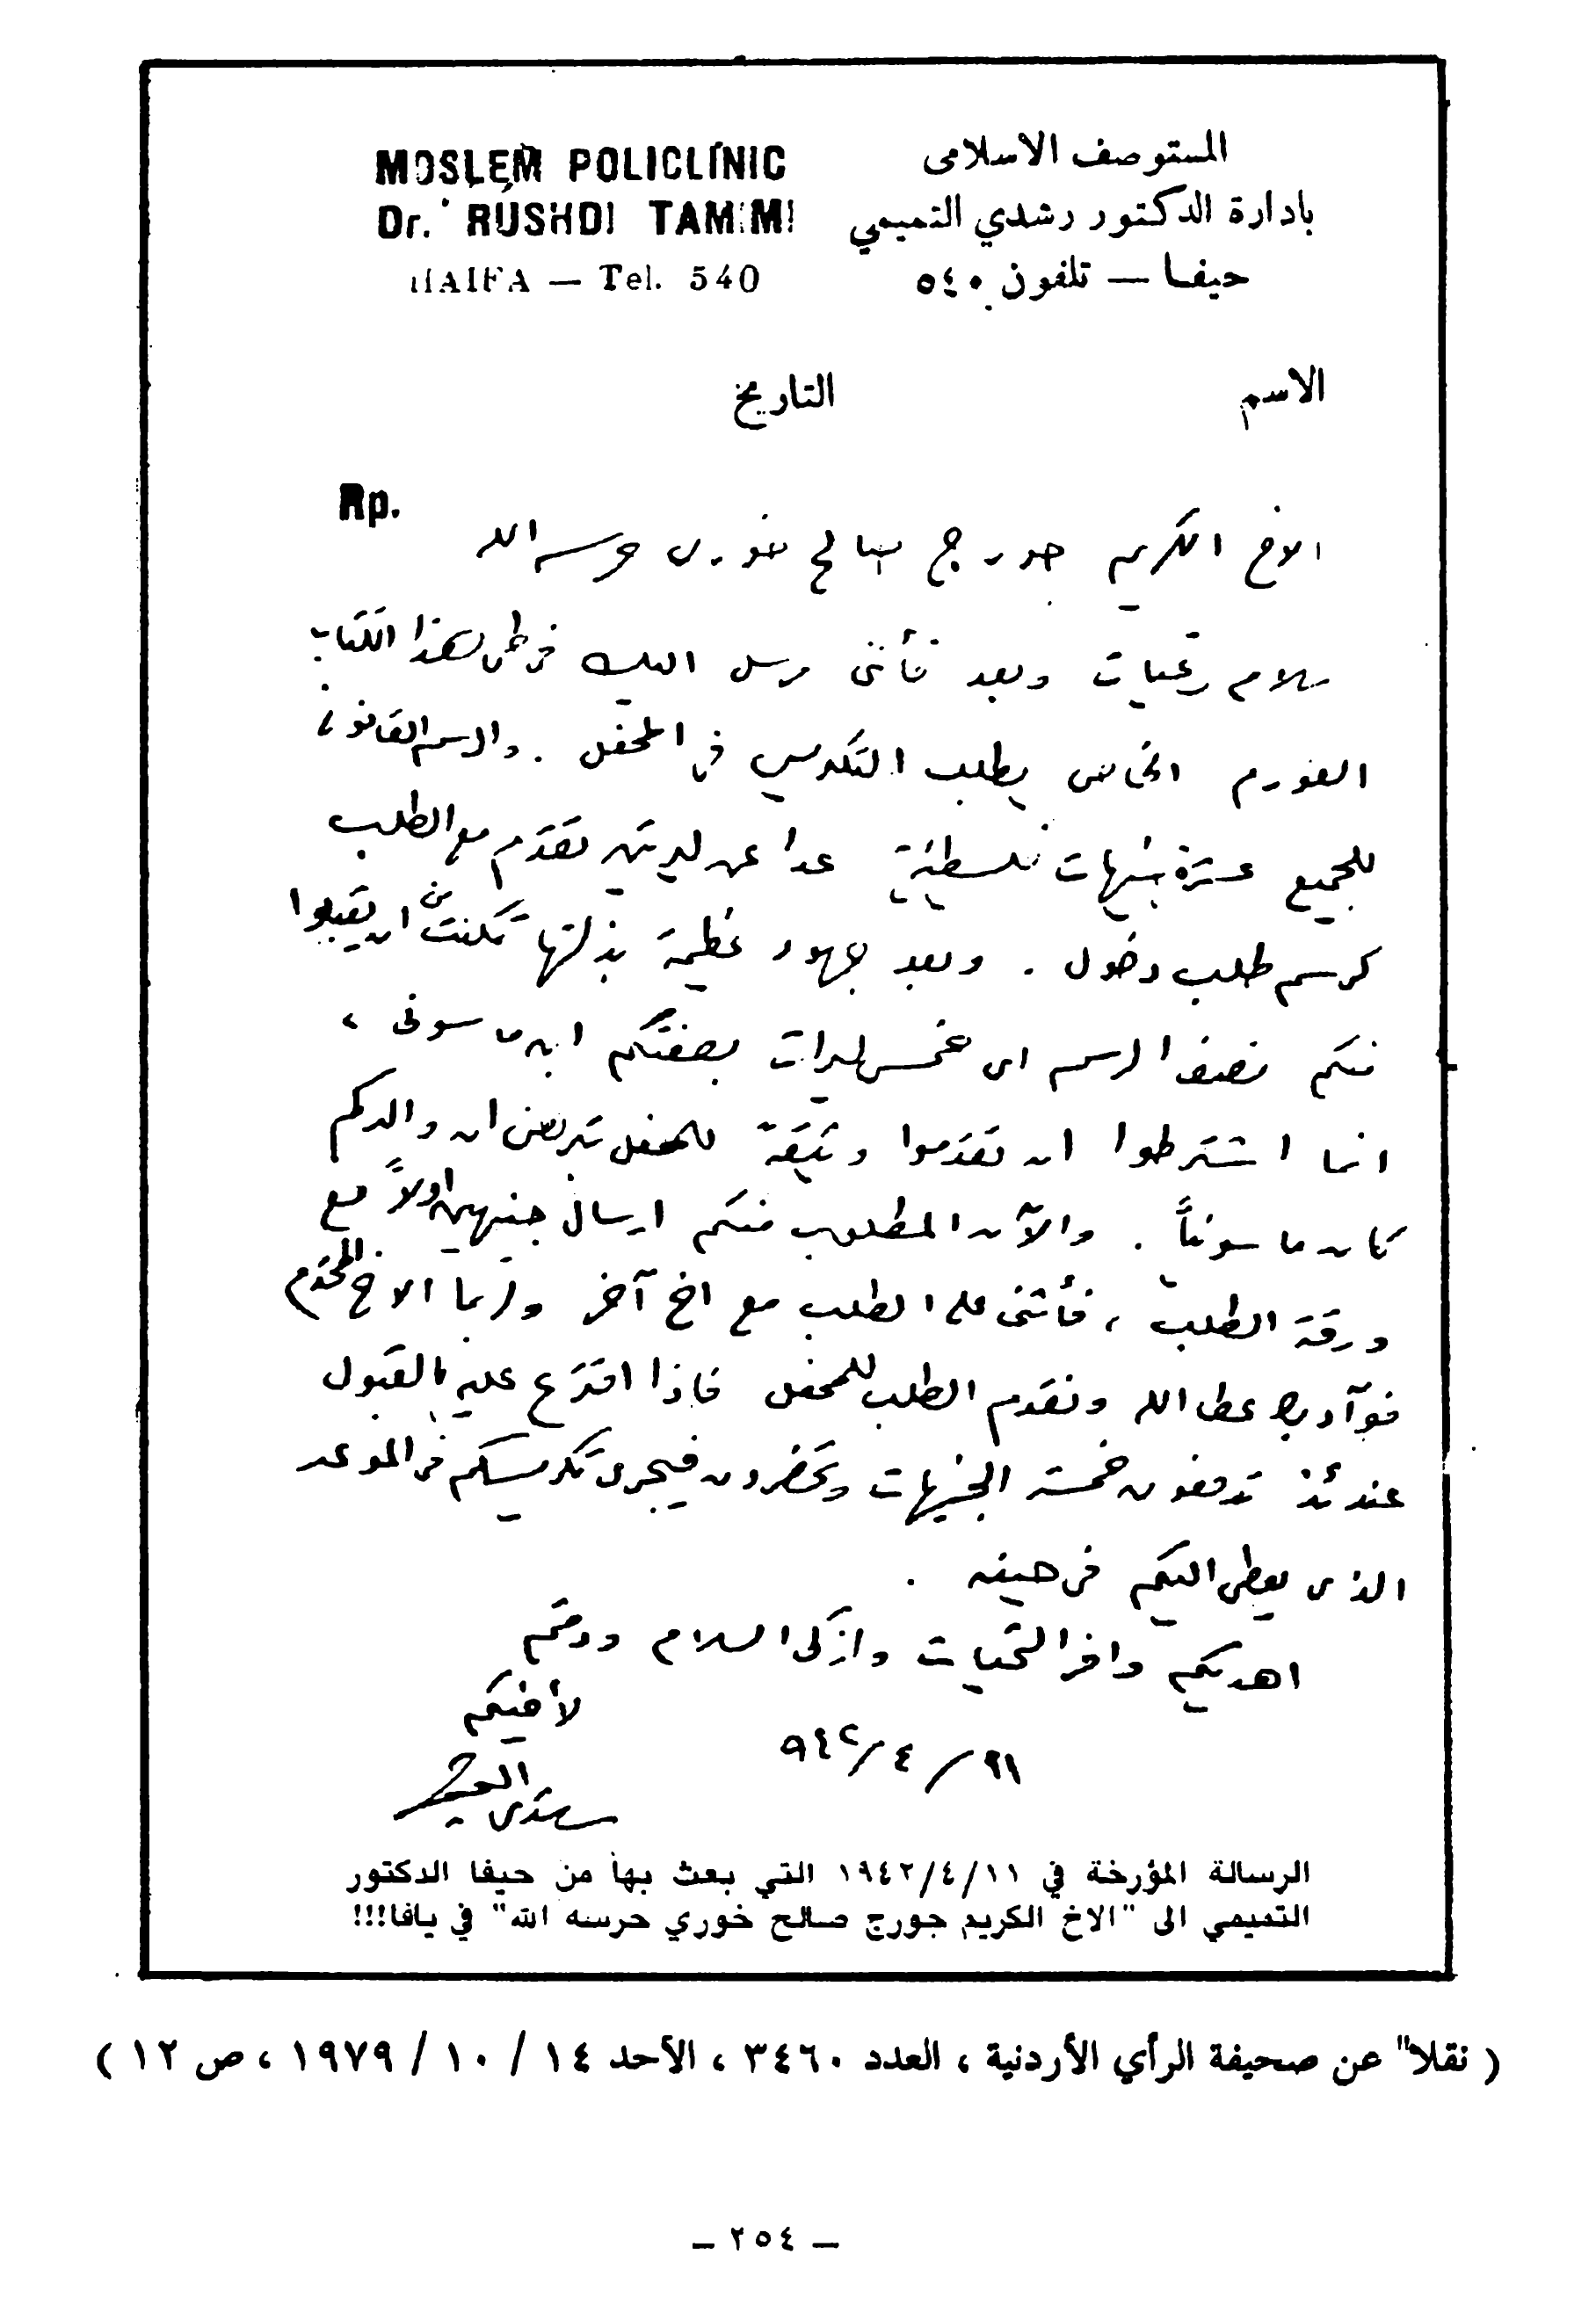 المستوصف الاسلامى
MOSLEM POLICLINIC
بادارة الدكتور رشدي التميمي
Dr. RUSHDI TAMIMI
حيفا — تلفون ٥٤٠
HAIFA — Tel. 540
الاسم التاريخ
Rp.
الاخ الكريم جورج صالح خورى حرسه الله
سلام وتحيات وبعد فأننى مرسل اليك فى طى هذا الكتاب
الفورم الخاص بطلب التكريس فى المحفل . والرسم القانونى
للجميع عشرة جنيهات فلسطينية عدا عن ليرتين تقدم مع الطلب
كرسم طلب دخول . وبعد جهود عظيمة بذلتها تمكنت من ان يقبلوا
منكم نصف الرسم اى خمس ليرات بصفتكم ابن ماسونى ،
انما اشترطوا ان تقدموا وثيقة للمحفل ان والدكم
كان ماسونياً . والآن المطلوب منكم ارسال جنيهين اولاً مع
ورقة الطلب ، فأثنى على الطلب مع اخ آخر وربما الاخ المحترم
فوآد عطا الله ونقدم الطلب للمحفل فاذا اقترع عليه بالقبول
عندئذ تدفعون خمسة الجنيهات وتحضرون فيجرى تكريسكم فى الموعد
الذى يعطى اليكم فى حينه .
اهديكم وافر التحيات وازكى السلام ودمتم
لأخيكم
١١/٤/٩٤٢
الرسالة المؤرخة في ١٩٤٢/٤/١١ التي بعث بها من حيفا الدكتور
التميمي الى "الاخ الكريم جورج صالح خوري حرسه الله" في يافا!!!
( نقلا" عن صحيفة الرأي الأردنية ، العدد ٣٤٦٠ ، الأحد ١٤ / ١٠ / ١٩٧٩ ، ص ١٢ )
— ٢٥٤ —